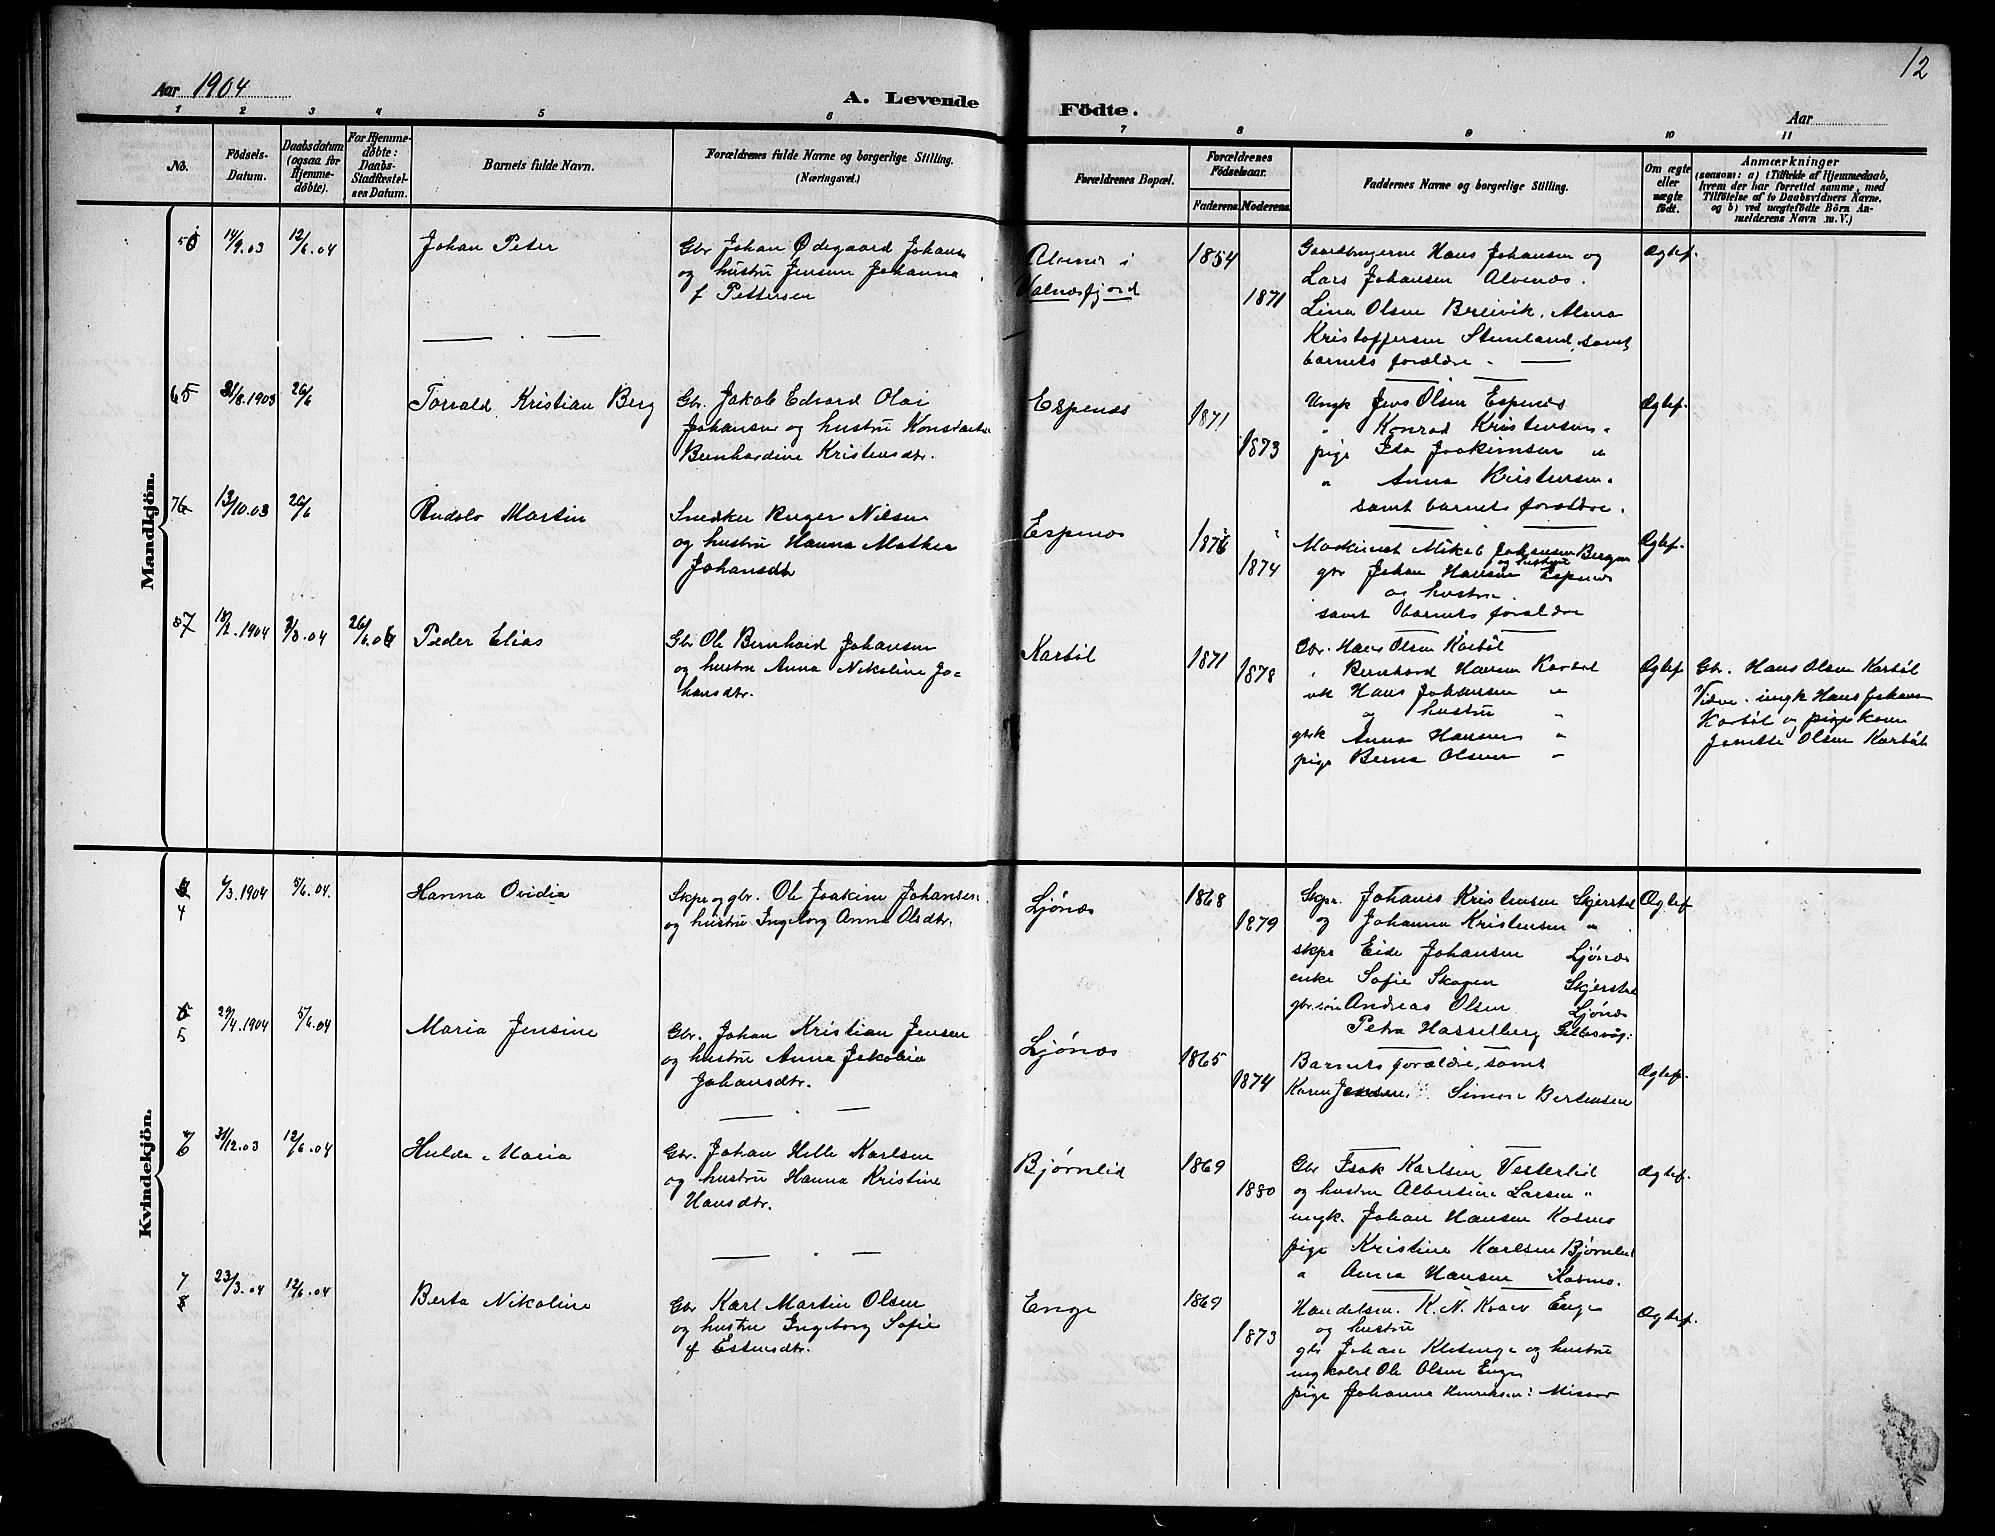 12
Aar 1904
A. Levende Födte.
Aar
1 2 3 4 5 6 7 8 9 10 11
No.
Födsels-
Datum.
Daabsdatum
(ogsaa for
Hjemme-
döbte).
For Hjemme-
döbte:
Daabs-
Stadfæstel-
ses Datum.
Barnets fulde Navn.
Forældrenes fulde Navne og borgerlige Stilling.
(Næringsvei.)
Forældrenes Bopæl.
Forældrenes
Födselsaar.
Faderens.
Moderens.
Faddernes Navne og borgerlige Stilling.
Om ægte
eller
uægte
födt.
Anmærkninger
(saasom: a) i Tilfælde af Hjemmedaab,
hvem der har forrettet samme, med
Tilföielse af to Daabsvidners Navne,
og b) ved uægtefödte Börn An-
melderens Navn m. V.)
Mandkjön.
14/9.03
12/6.04
Johan Peter
Gbr Johan Ødegaard Johansen
og hustru Jensen Johanna
f Pettersen
Alvenes i
Valnæsfjord
1854
1871
Gaardbrugerne Hans Johansen og
Lars Johansen Alvenæs.
Lina Olsen Breivik, Alma
Kristoffersen Stenland, samt
barnets forældre.
Ægtef.
65
21/8.1903
26/6
Torvald Kristian Berg
Gbr. Jakob Edvard Olai
Johansen og hustru
Bernhardine Kristensdtr.
Espenæs
1871
1873
Ungk Jens Olsen Espenæs
" Konrad Kristensen "
pige Ida Joakimsen "
" Anna Kristensen "
samt barnets forældre.
Ægtef.
76
13/10.03
26/6
Rudolv Martin
Snedker Birger Nilsen
og hustru Hanna Mathea
Johansdtr
Espenæs
1876
1874
Maskinist Mikal Johansen Bergen
og hustru
gbr Johan Hansen Espenæs
og hustru.
samt barnets forældre
Ægtef.
87
18/2.1904
3/3.04
26/6.04
Peder Elias
Gbr Ole Bernhard Johansen
og hustru Anna Nikoline Jo-
hansdtr.
Karbøl
1871
1878
Gbr. Hans Olsen Karbøl
" Bernhard Hansen Karbøl
uk Hans Johansen "
og hustru "
gbrk Anna Hansen "
pige Berna Olsen "
Ægtef
Gbr. Hans Olsen Karbøl
Vidne. ungk Hans Johansen
Karbøl og pige Karen
Jonette Olsen Karbøl
Kvindekjön.
4
6/3.1904
5/6.04.
Hanna Ovidia
Skpr og gbr. Ole Joakim Johansen
og hustru Ingeborg Anna Olsdtr.
Ljønæs
1868
1879
Skpr. Johanes Kristensen Skjerstad
og Johanna Kristensen "
skpr Eide Johansen Ljønæs
enke Sofie Skagen Skjerstad
Andreas Olsen Ljønæs
Petra Hasselberg
Ægtef
5
29/4.1904
5/6.04
Maria Jensine
Gbr. Johan Kristian Jensen
og hustru Anna Jakobia
Johansdtr.
Ljønæs
1865
1874
Barnets forældre, samt
Karen Jensen. Simon Bertensen
Ægtef.
6
31/12.03
12/6.04
Hulda Maria
Gbr. Johan Hille Karlsen
og hustru Hanna Kristine
Hansdtr.
Bjørnlid
1869
1880
Gbr Isak Karlsen Vesterlid
og hustru Albertine Larsen "
ungk. Johan Hansen Kosmo
pige Kristine Karlsen Bjørnlid
" Anna Hansen Kosmo.
Ægtef.
7
23/3.04
12/6.04
Berta Nikoline
Gbr Karl Martin Olsen
og hustru Ingeborg Sofie
f Estensdtr.
Enge
1869
1873
Handelsm. K. N. Kvæv Enge
og hustru
gbr Johan Kletinge og hustru
ungkarl Ole Olsen Enge
pige Johanna Henriksen: Misvær
Ægtef.